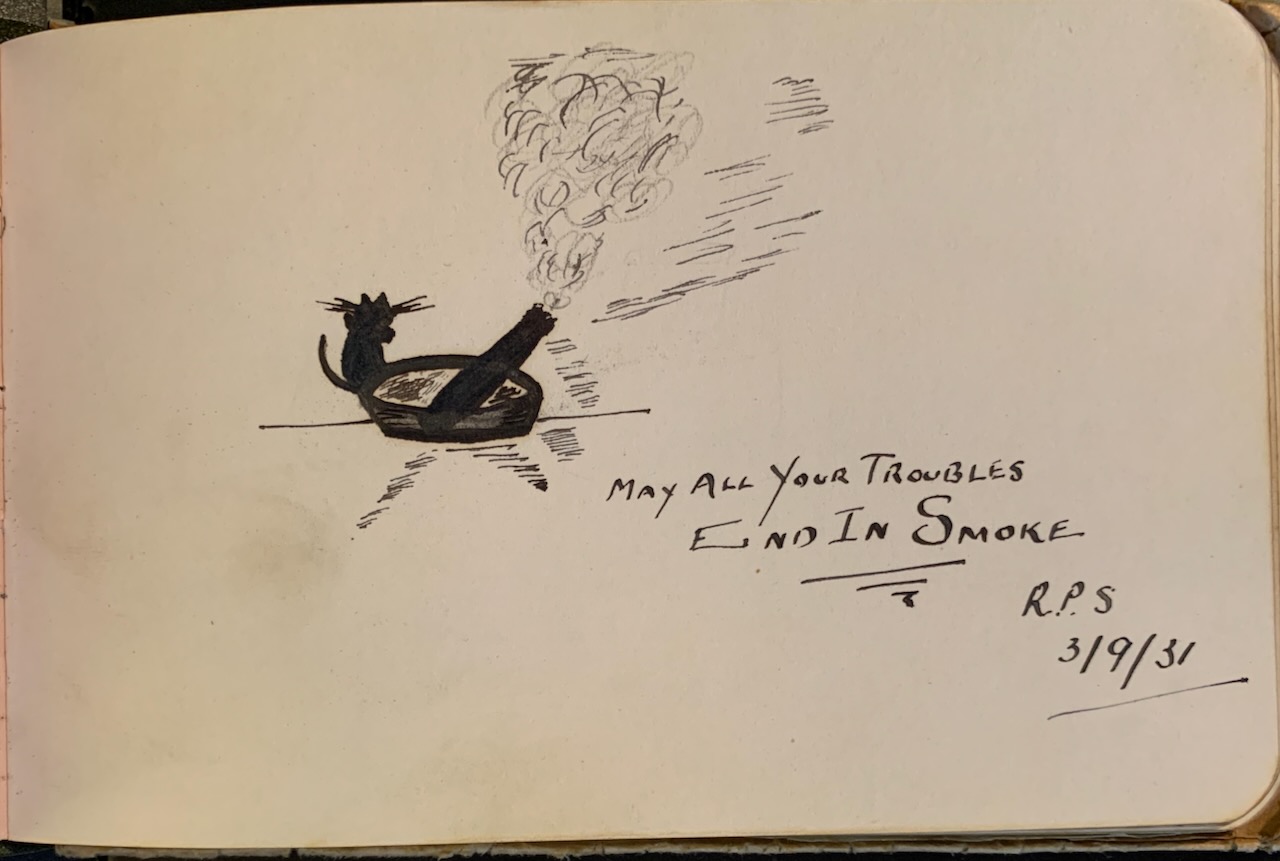 May All Your Troubles
End In Smoke
R.P.S
3/9/31